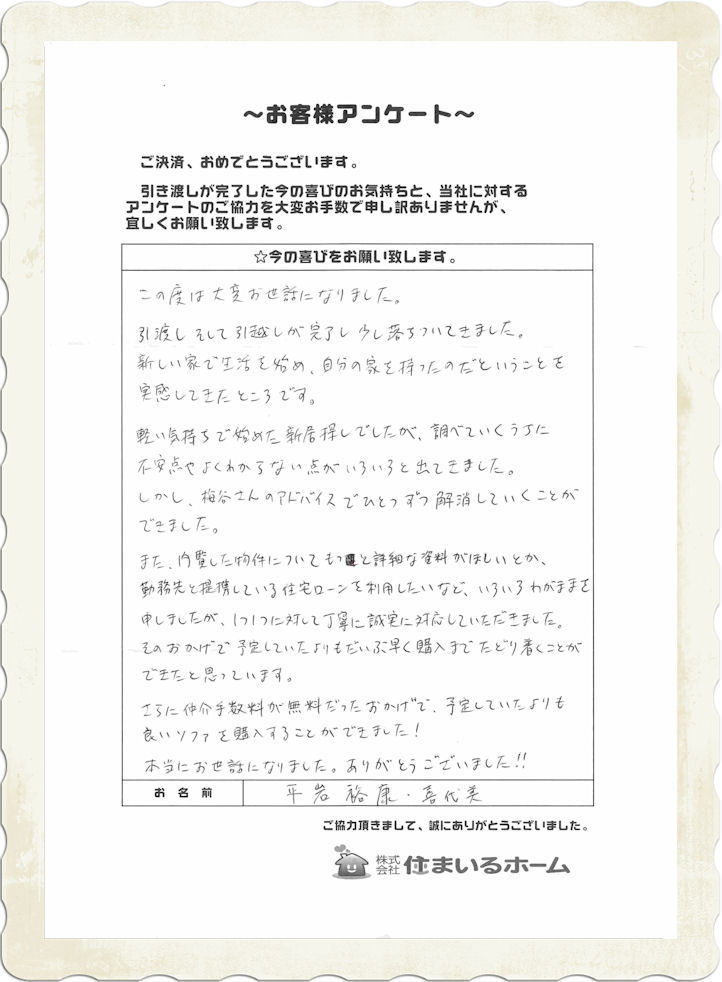 ~お客様アンケート~
ご決済、おめでとうございます。
引き渡しが完了した今の喜びのお気持ちと、当社に対する
アンケートのご協力を大変お手数で申し訳ありませんが、
宜しくお願い致します。
☆今の喜びをお願い致します。
この度は大変お世話になりました。
引渡し そして引越しが完了し少し落ちついてきました。
新しい家で生活を始め、自分の家を持ったのだということを
実感してきたところです。
軽い気持ちで始めた新居探しでしたが、調べていくうちに
不安点やよくわからない点がいろいろと出てきました。
しかし、梅谷さんのアドバイスでひとつずつ解消していくことが
できました。
また、内覧した物件についてもっと詳細な資料がほしいとか、
勤務先と提携している住宅ローンを利用したいなど、いろいろわがままを
申しましたが、1つ1つに対して丁寧に誠実に対応していただきました。
そのおかげで予定していたよりもだいぶ早く購入までたどり着くことが
できたと思っています。
さらに仲介手数料が無料だったおかげで、予定していたよりも
良いソファを購入することができました!
本当にお世話になりました。ありがとうございました!!
お名前 平岩 裕康・喜代美
ご協力頂きまして、誠にありがとうございました。
株式会社 住まいるホーム